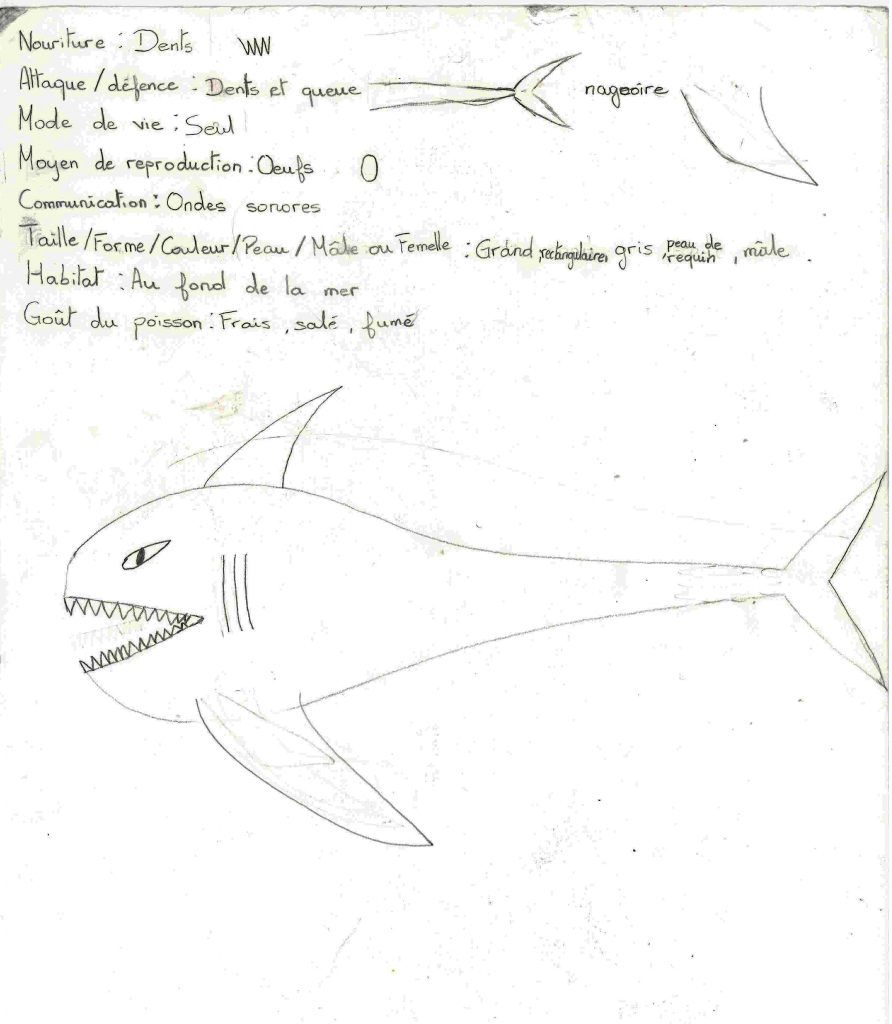 Nouriture : Dents
Attaque/défence : Dents et queue nageoire
Mode de vie : Seul
Moyen de reproduction : Oeufs
Communication : Ondes sonores
Taille/Forme/Couleur/Peau/Mâle ou Femelle : Grand, rectangulaire, gris, peau de requin, mâle.
Habitat : Au fond de la mer
Goût du poisson : Frais, salé, fumé